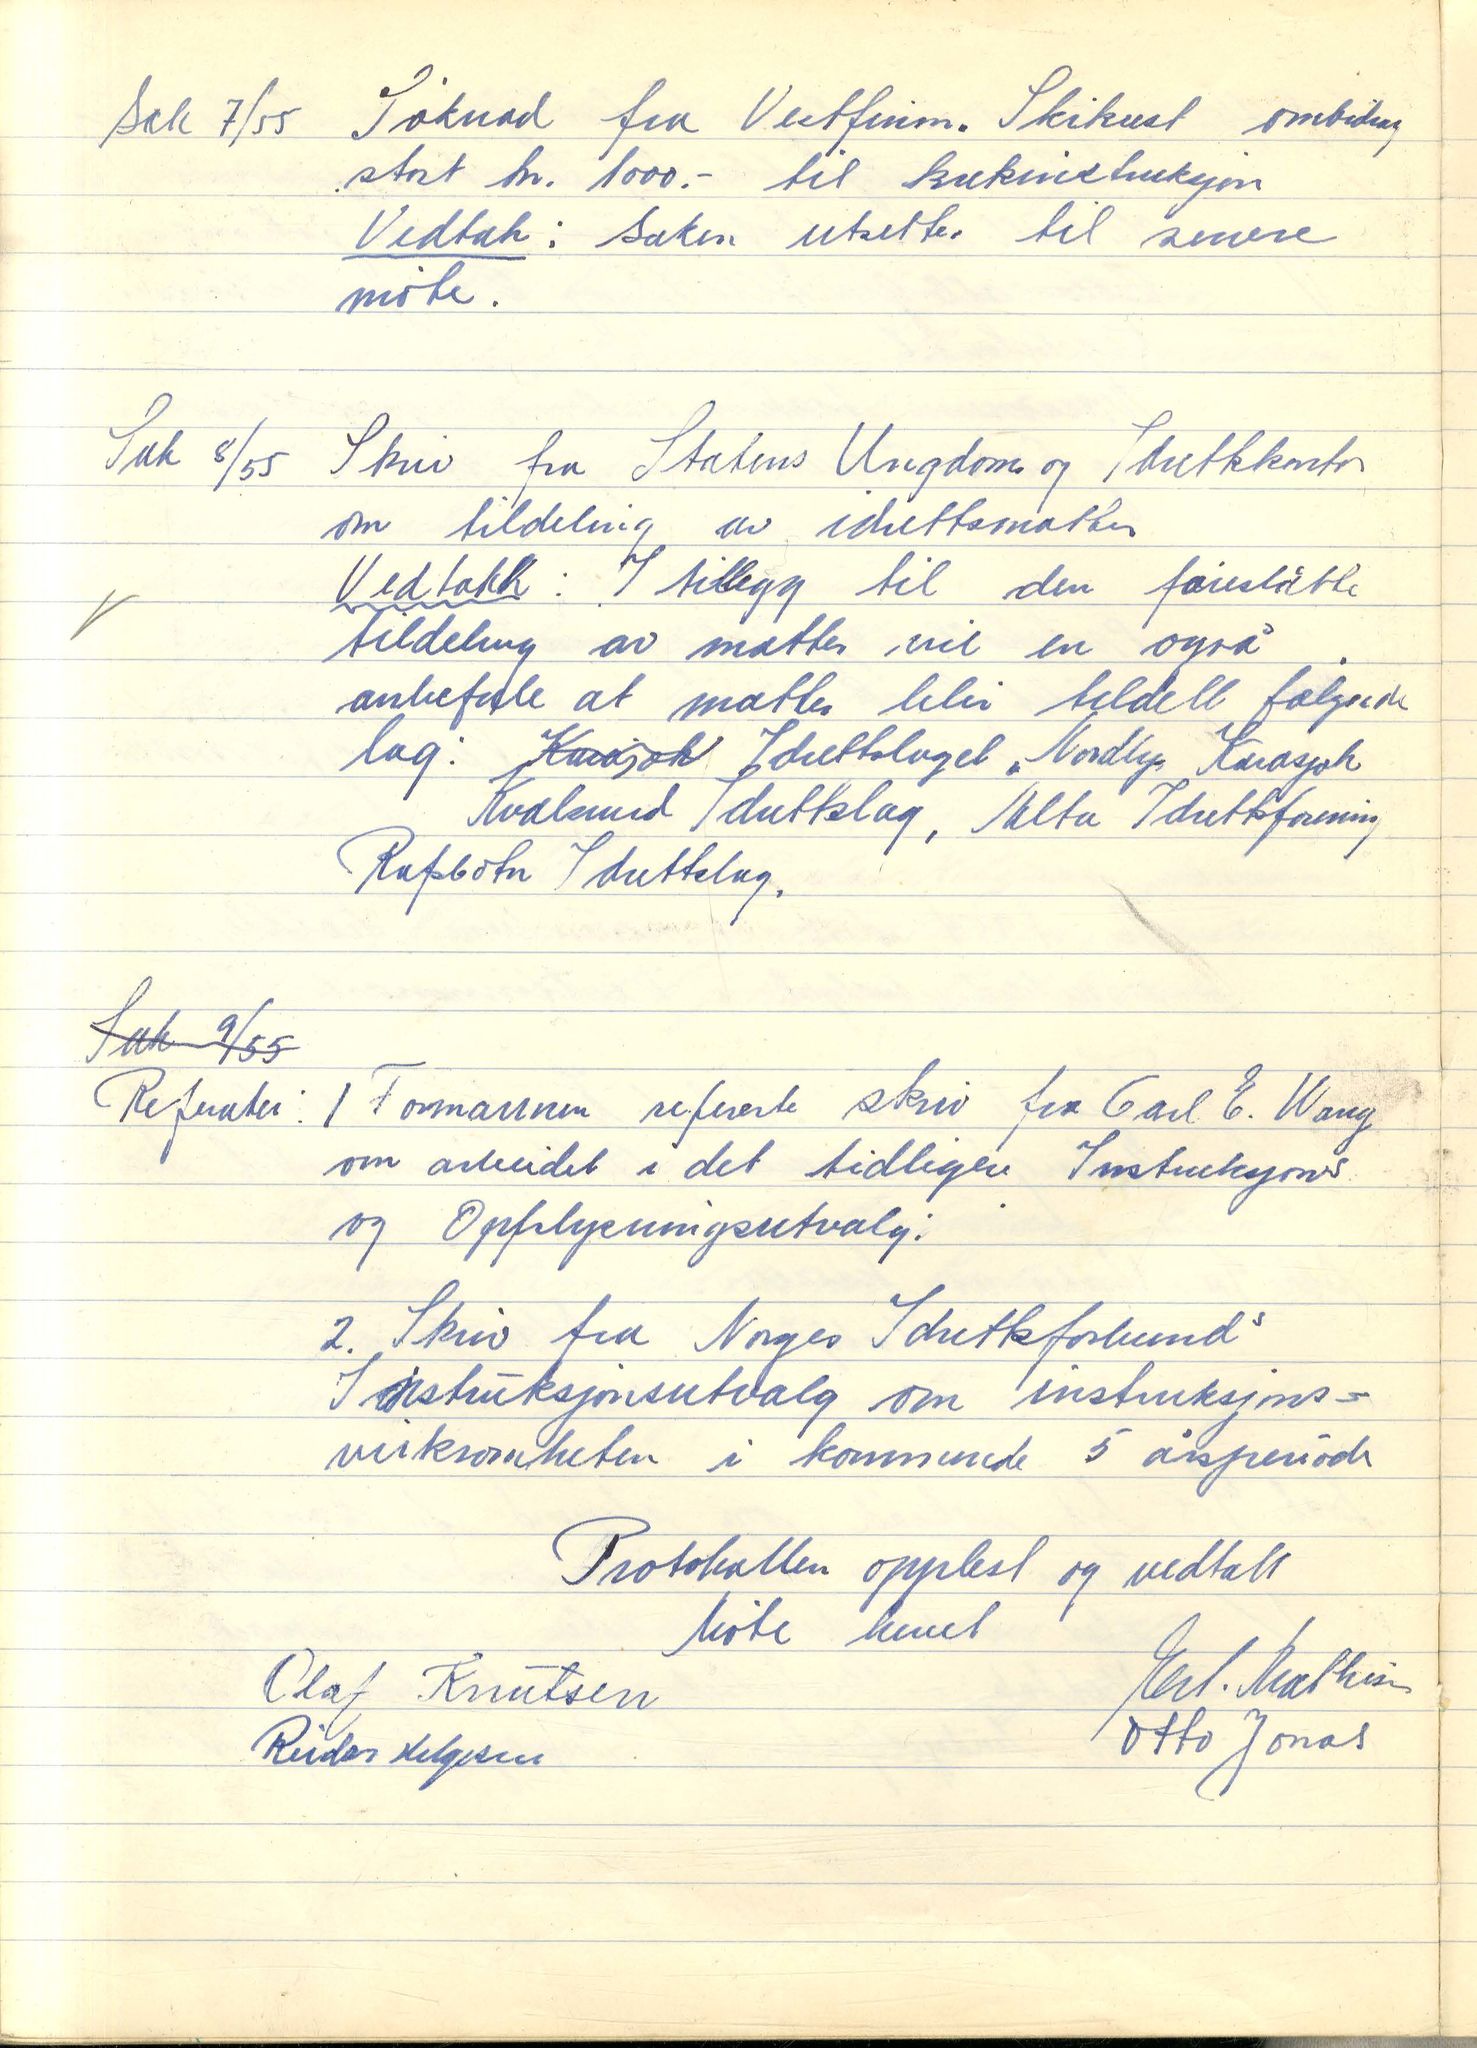 Sak 7/55 Søknad fra Vestfinnm. Skikrest ombidrag
stort kr. 1000.- til krekinstruksjon
Vedtak: Saken utsettes til senere
møte.
Sak 8/55 Skriv fra Statens Ungdoms og Idrettkontor
om tildeling av idrettsmatter
Vedtakk: I tillegg til den föreslåtte
tildeling av matter vil en også
anbefale at matter blir tildelt følgende
lag: Karasjok Idrettslaget "Nordlys Karasjok
Kvalsund Idrettslag, Alta Idrettsforening
Rafsbotn Idrettslag.
Sak 9/55
Referater: 1 Formannen refererte skriv fra Carl E. Wang
om arbeidet i det tidligere Instruksjons
og Opplysningsutvalg.
2. Skriv fra Norges Idrettsforbund's
Instruksjonsutvalg om instruksjons=
virksomheten i kommende 5 årsperiode
Protokollen opplest og vedtatt
Møte hevet
Olaf Knutsen Mathisen
Reidar Helgesen Otto Jonas